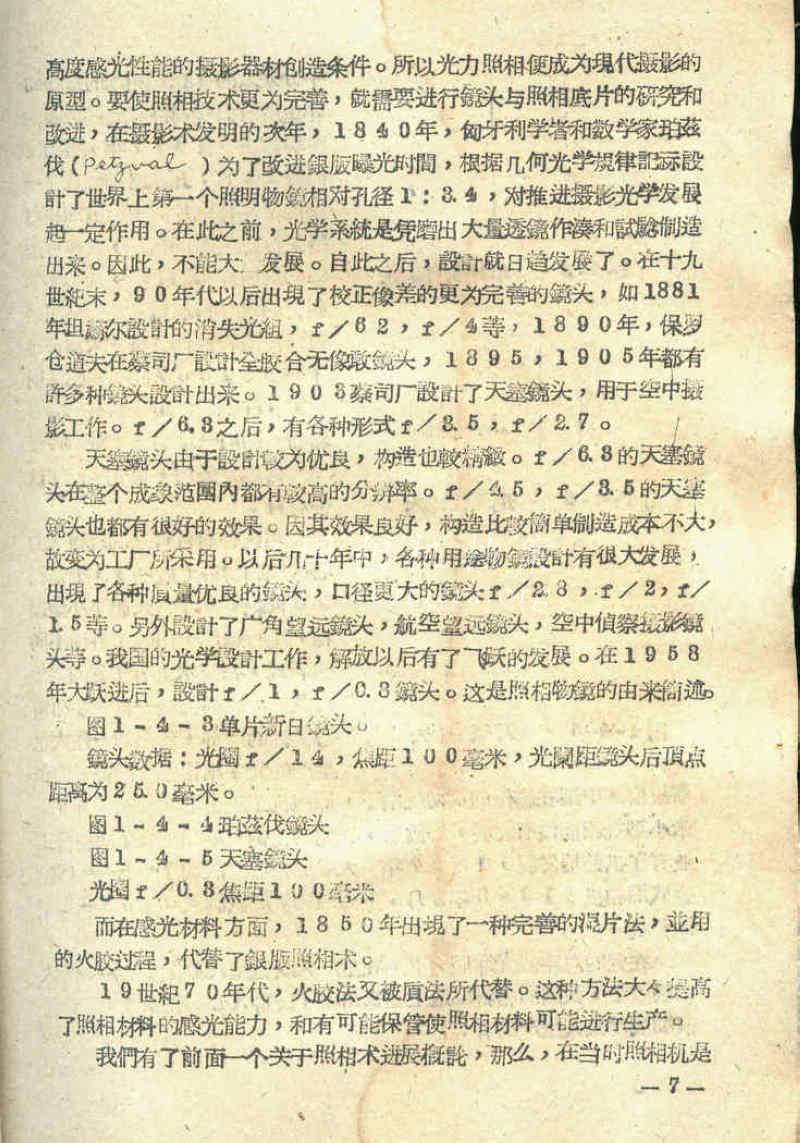 高度感光性能的摄影器材创造条件。所以光力照相便成为現代摄影的
原型。要使照相技术更为完善，就需要进行鏡头与照相底片的研究和
改进，在摄影术发明的次年，1840年，匈牙利学者和数学家珀茲
伐（Petzval）为了改进銀版曝光时間，根据几何光学規律記录設
計了世界上第一个照明物鏡相对孔径1：3.4，对推进摄影光学发展
起一定作用。在此之前，光学系統是凭磨出大量透鏡作凑和試驗制造
出来。因此，不能大 发展。自此之后，設計就日趋发展了。在十九
世紀末，90年代以后出現了校正像差的更为完善的鏡头，如1881
年 尔設計的消失光組，f／62，f／4等，1890年，保罗
仓道夫在蔡司厂設計全胶合无像散鏡头，1895，1905年都有
許多种鏡头設計出来。1903蔡司厂設計了天塞鏡头，用于空中摄
影工作。f／6.3之后，有各种形式f／3.5，f／2.7。
天塞鏡头由于設計較为优良，构造也較精緻。f／6.3的天塞鏡
头在整个成象范圍內都有較高的分辨率。f／4.5，f／3.5的天塞
鏡头也都有很好的效果。因其效果良好，构造比較简单制造成本不大，
故变为工厂所采用。以后几十年中，各种用途物鏡設計有很大发展，
出現了各种质量优良的鏡头，口径更大的鏡头f／2.8，f／2，f／
1.5等。另外設計了广角望远鏡头，航空望远鏡头，空中偵察摄影鏡
头等。我国的光学設計工作，解放以后有了飞跃的发展。在1958
年大跃进后，設計f／1，f／0.8鏡头。这是照相物鏡的由来简述。
图1－4－3单片新日鏡头。
鏡头数据：光圈f／14，焦距100毫米，光闌距鏡头后頂点
距离为25.0毫米。
图1－4－4珀茲伐鏡头
图1－4－5天塞鏡头
光圈f／0.3焦距100毫米
而在感光材料方面，1850年出現了一种完善的湿片法，並用
的火胶过程，代替了銀版照相术。
19世紀70年代，火胶法又被 法所代替。这种方法大々提高
了照相材料的感光能力，和有可能保管使照相材料可能进行生产。
我們有了前面一个关于照相术进展概 ，那么，在当时照相机是
－7－